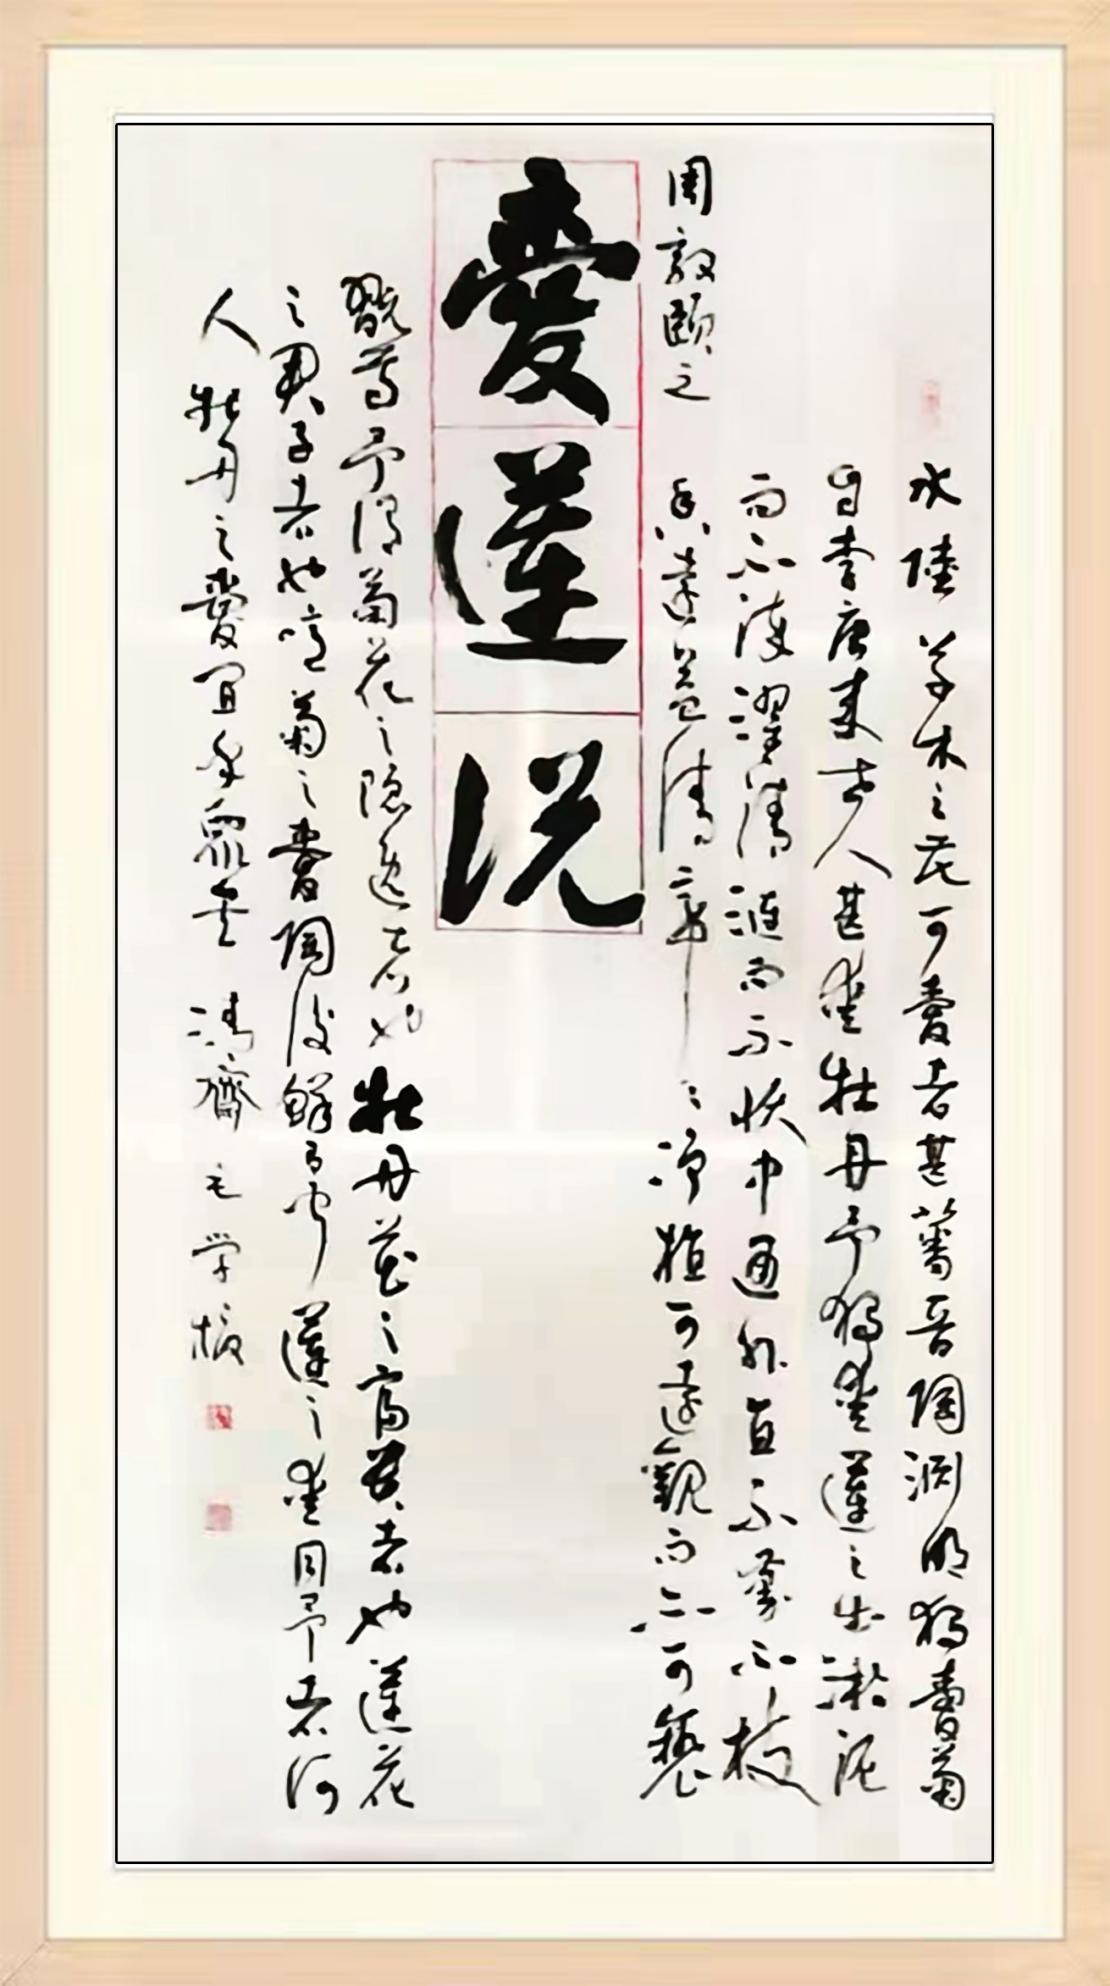 水陸草木之花可愛者甚蕃晉陶淵明獨愛菊
自李唐来世人甚愛牡丹予獨愛蓮之出淤泥
而不染濯清漣而不妖中通外直不蔓不枝
周敦頤之
香遠益清亭〻淨植可遠觀而不可褻
愛蓮說
翫焉予謂菊花之隐逸者也牡丹花之富貴者也蓮花
之君子者也噫菊之愛陶後鮮有聞蓮之愛同予者何
人牡丹之愛宜乎衆矣 清齋 毛学